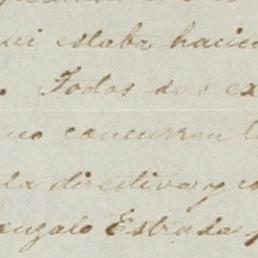 estaba hacien
. Todos sus ex
no concurran
la directiva y co
Gonzalo Estrada